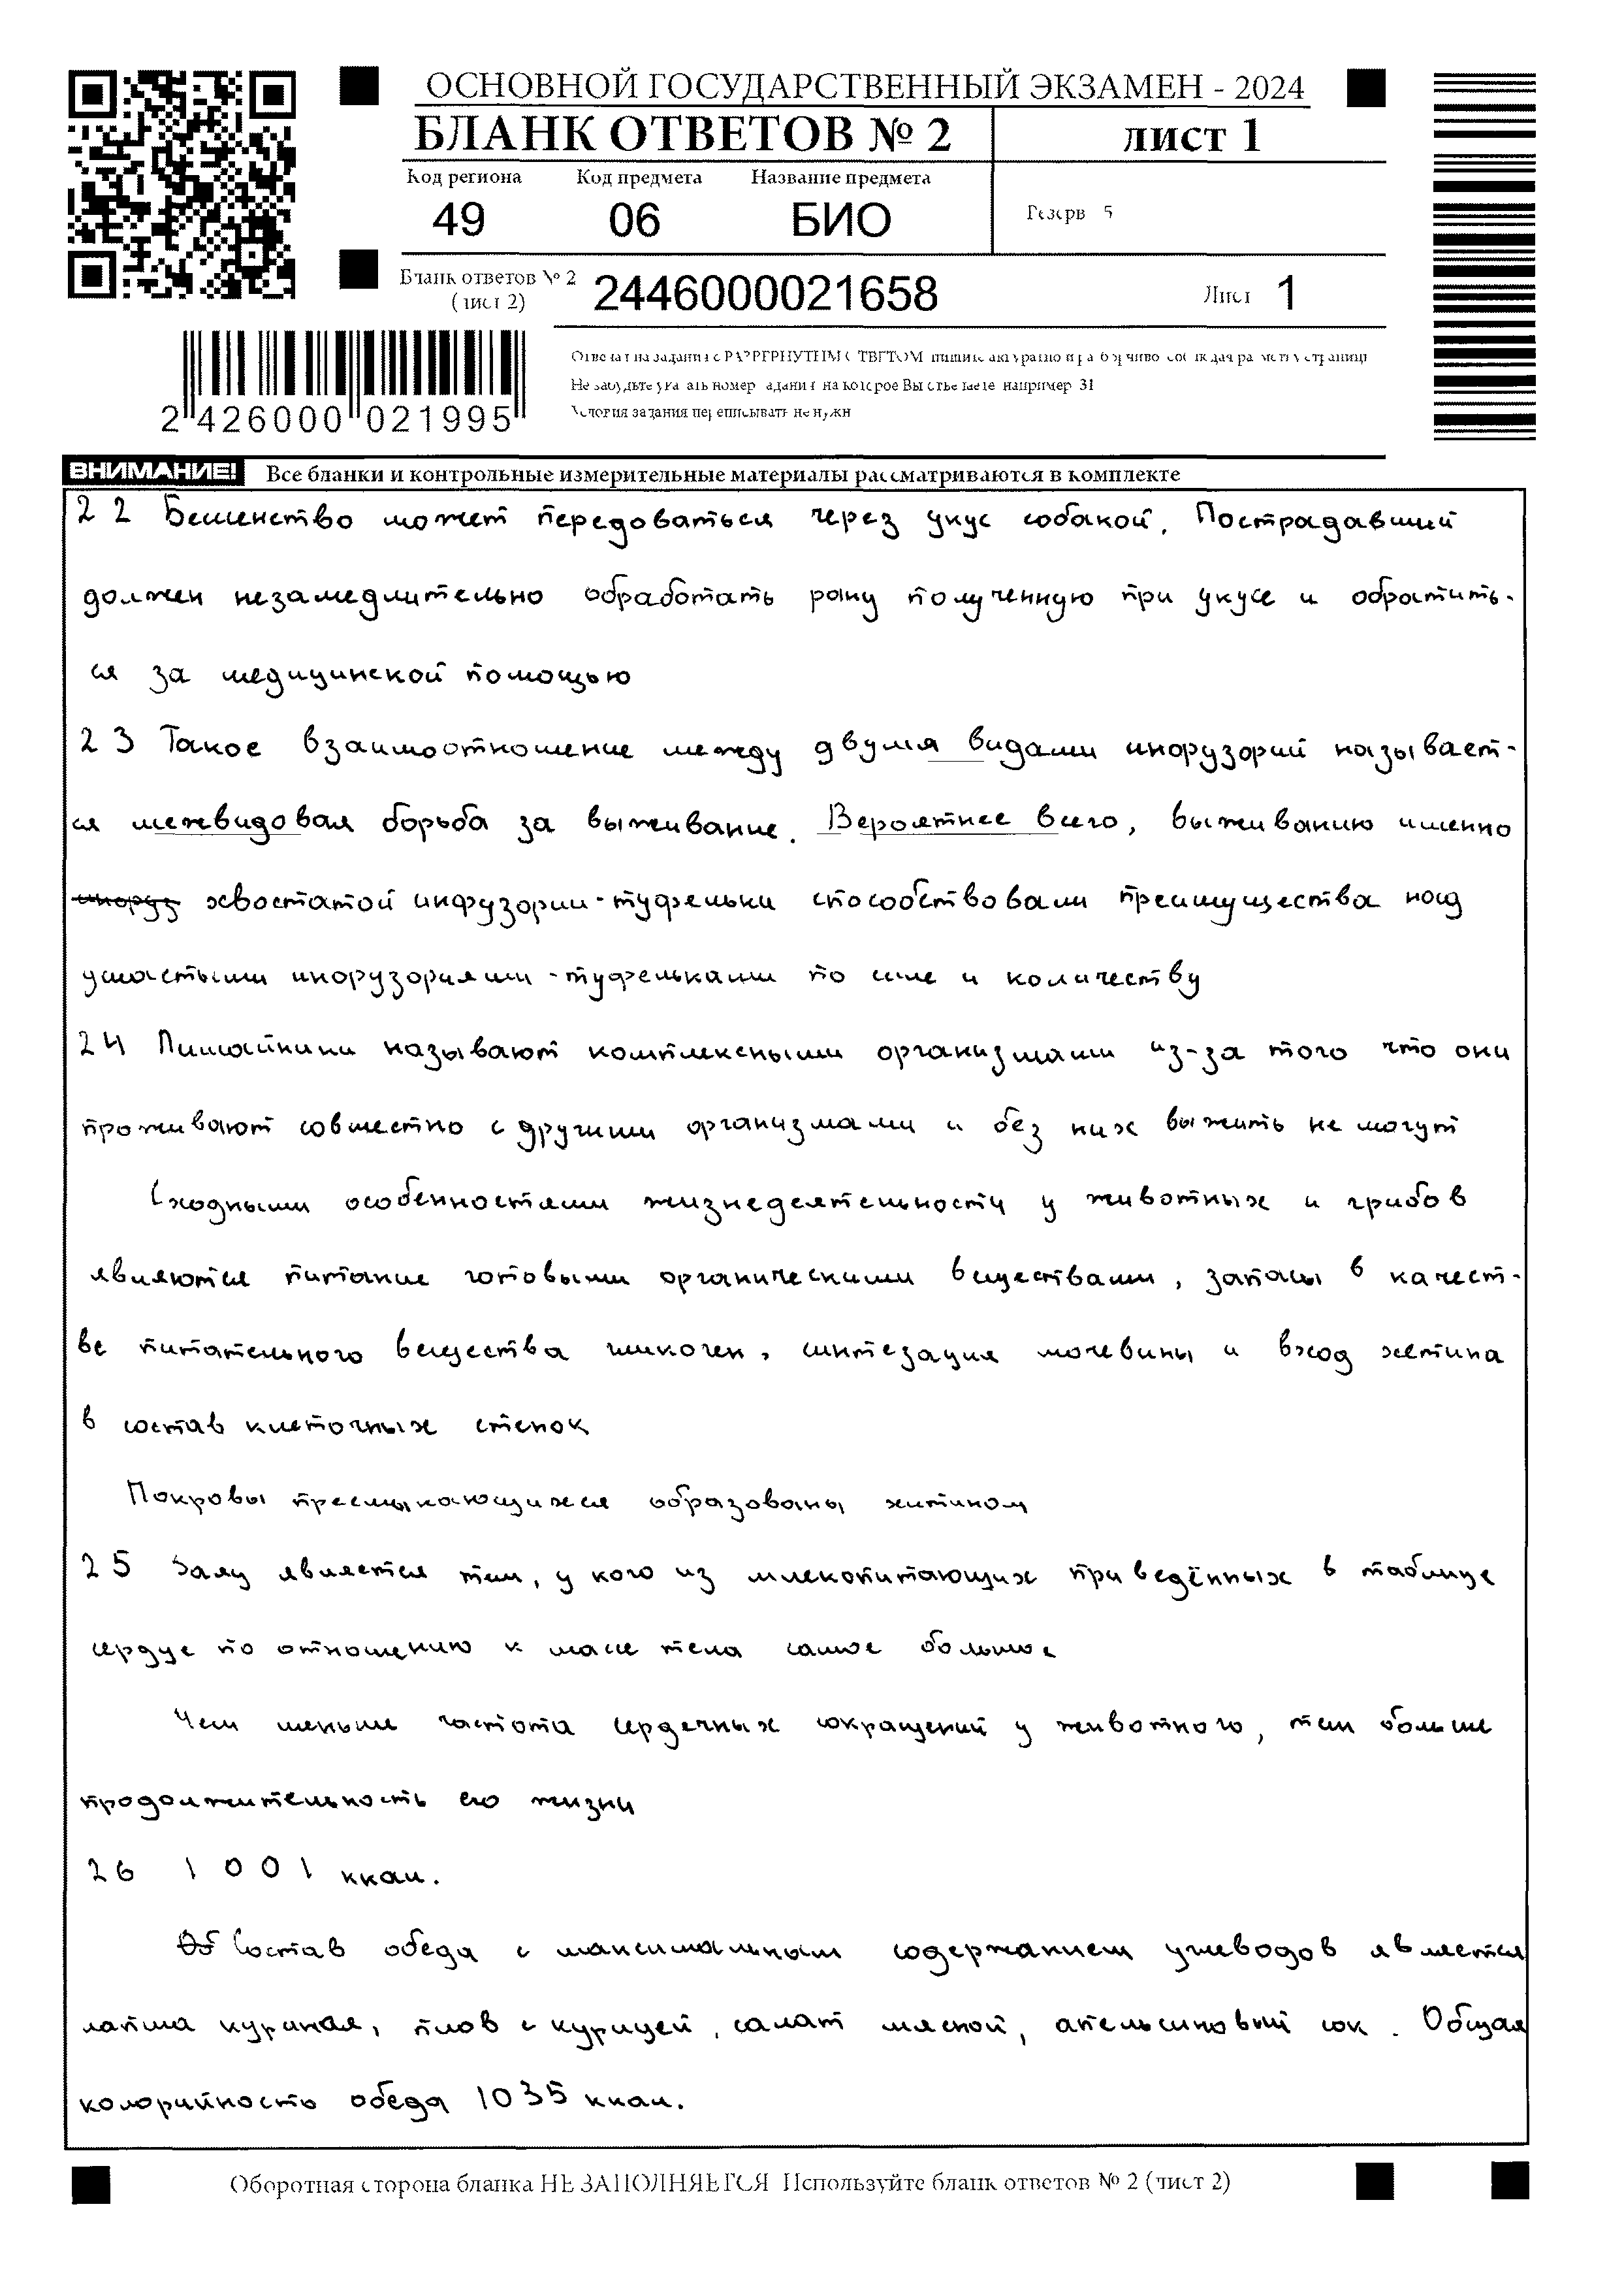 ОСНОВНОЙ ГОСУДАРСТВЕННЫЙ ЭКЗАМЕН - 2024
БЛАНК ОТВЕТОВ № 2
ЛИСТ 1
Код региона Код предмета Название предмета
49 06 БИО
Резерв 5
Бланк ответов № 2
(лист 2)
2446000021658
Лист 1
2 426000 021995
Отвечая на задания с РАЗВЕРНУТЫМ ОТВЕТОМ пишите аккуратно и разборчиво соблюдая разметку страницы
Не забудьте указать номер задания на которое Вы отвечаете например 31
Условия задания переписывать не нужно
ВНИМАНИЕ! Все бланки и контрольные измерительные материалы рассматриваются в комплекте
22 Бешенство может передоваться через укус собакой. Пострадавший
должен незамедлительно обработать рану полученную при укусе и обратить-
ся за медицинской помощью
23 Такое взаимоотношение между двумя видами инфузорий называет-
ся межвидовая борьба за выживание. Вероятнее всего, выживанию именно
хвостатой инфузории-туфельки способствовали преимущества над
ушастыми инфузориями-туфельками по силе и количеству
24 Лишайники называют комплексными организмами из-за того что они
проживают совместно с другими организмами и без них выжить не могут
Сходными особенностями жизнедеятельности у животных и грибов
являются питание готовыми органическими веществами, запасы в качест-
ве питательного вещества гликоген, синтезация мочевины и вход хетина
в состав клеточных стенок
Покровы пресмыкающихся образованы хитином
25 Заяц является тем, у кого из млекопитающих приведённых в таблице
сердце по отношению к массе тела самое большое
Чем меньше частота сердечных сокращений у животного, тем больше
продолжительность его жизни
26 1001 ккал.
Состав обеда с максимальным содержанием углеводов является
лапша куриная, плов с курицей, салат мясной, апельсиновый сок. Общая
колорийность обеда 1035 ккал.
Оборотная сторона бланка НЕ ЗАПОЛНЯЕТСЯ Используйте бланк ответов № 2 (лист 2)